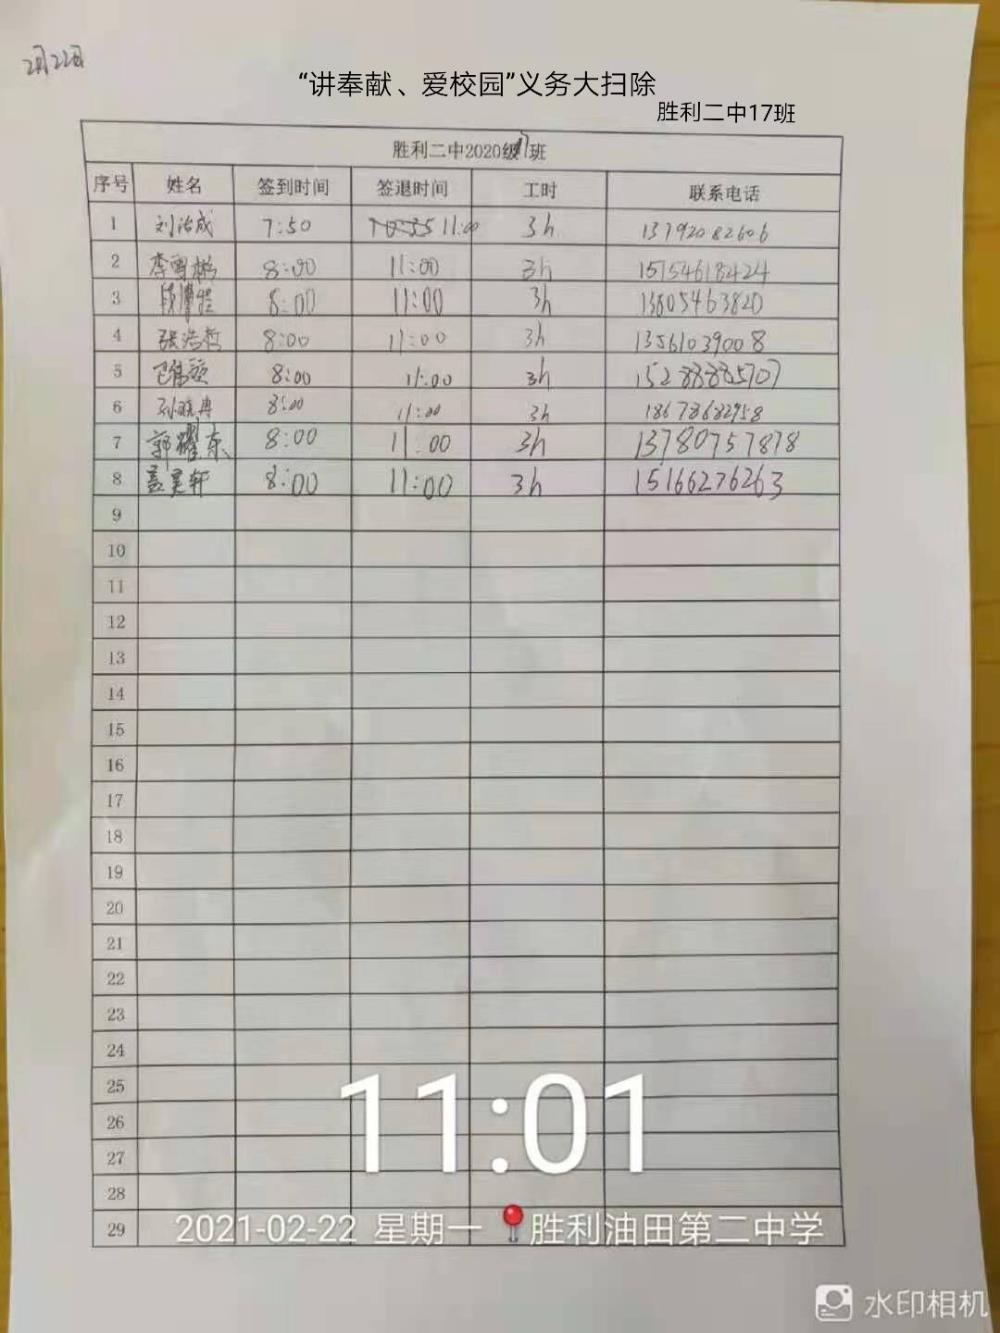 2月22日
“讲奉献、爱校园”义务大扫除
胜利二中17班
胜利二中2020级17班
序号 姓名 签到时间 签退时间 工时 联系电话
1 刘治成 7:50 11:00 3h 13792082606
2 李雪彬 8:00 11:00 3h 15154618424
3 8:00 11:00 3h 13805463820
4 张浩哲 8:00 11:00 3h 13561039008
5 8:00 11:00 3h 15288885707
6 孙晓冉 8:00 11:00 3h 18678682958
7 郭耀东 8:00 11:00 3h 13780757878
8 孟昊轩 8:00 11:00 3h 15166276263
9
10
11
12
13
14
15
16
17
18
19
20
21
22
23
24
25
26
27
28
29
11:01
2021-02-22 星期一 胜利油田第二中学
水印相机